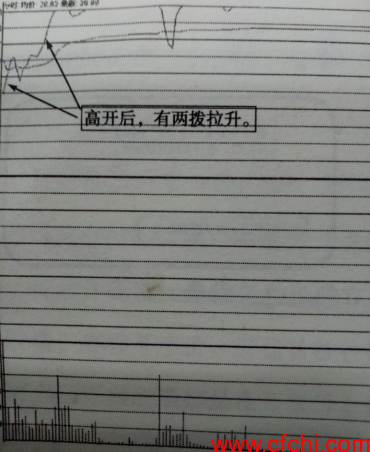 分时 均价: 20.82 最新: 20.89
高开后，有两拨拉升。
www.cfchi.com